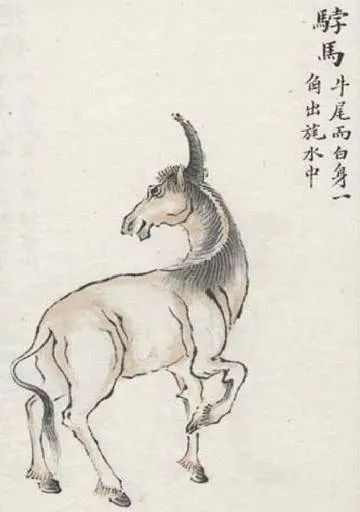 䮀馬
牛尾而白身一
角出旄水中